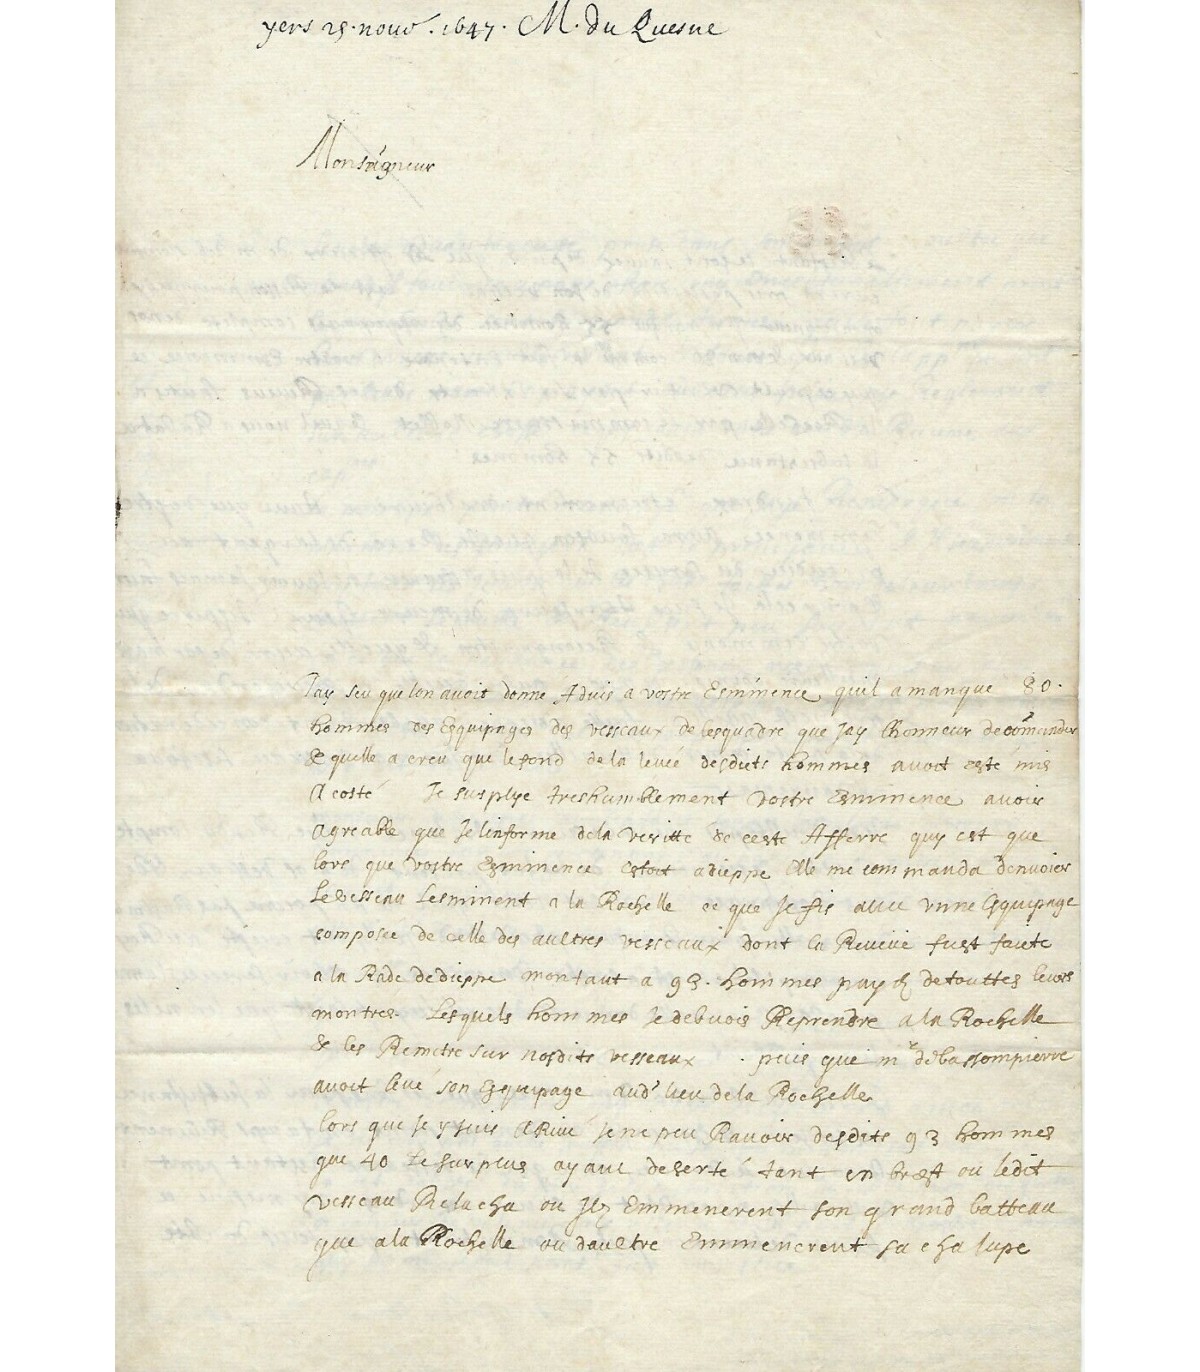 yers 25 nouv. 1647. M. du Quesne
Monseigneur
Jay sceu que lon avoit donné Aduis a vostre Esminence quil a manque 80.
hommes des Esquipages des vesseaux de lesquadre que Jay lhonneur de commander
& quelle a creu que le fond de la leuéé desdicts hommes avoit esté mis
A costé Je suplye treshumblement vostre Esminence avoir
agreable que Je linforme de la veritté de ceste Afferre quy est que
lors que vostre Esminence estoit a dieppe Elle me commanda denvoier
Le vesseau Lesminent a la Rochelle ce que Je fis avec vnne Esquipage
composée de celle des aultres vesseaux dont la Reveüe fust faicte
a la Rade de dieppe montant a 93. hommes payes de touttes leurs
montres. Lesquels hommes Je debvois Reprendre a la Rochelle
& les Remetre sur nosdits vesseaux . puis que mr de bassompierre
avoit levé son esquipage aud. lieu de la Rochelle
Lors que Je y suis ARivé Je ne peu Ravoir desdits 93 hommes
que 40 Le surplus ayant deserté tant en brest ou ledit
vesseau Relacha ou Ilz Emmenerent son grand batteau
que a la Rochelle ou daultre Emmenerent sa chalupe